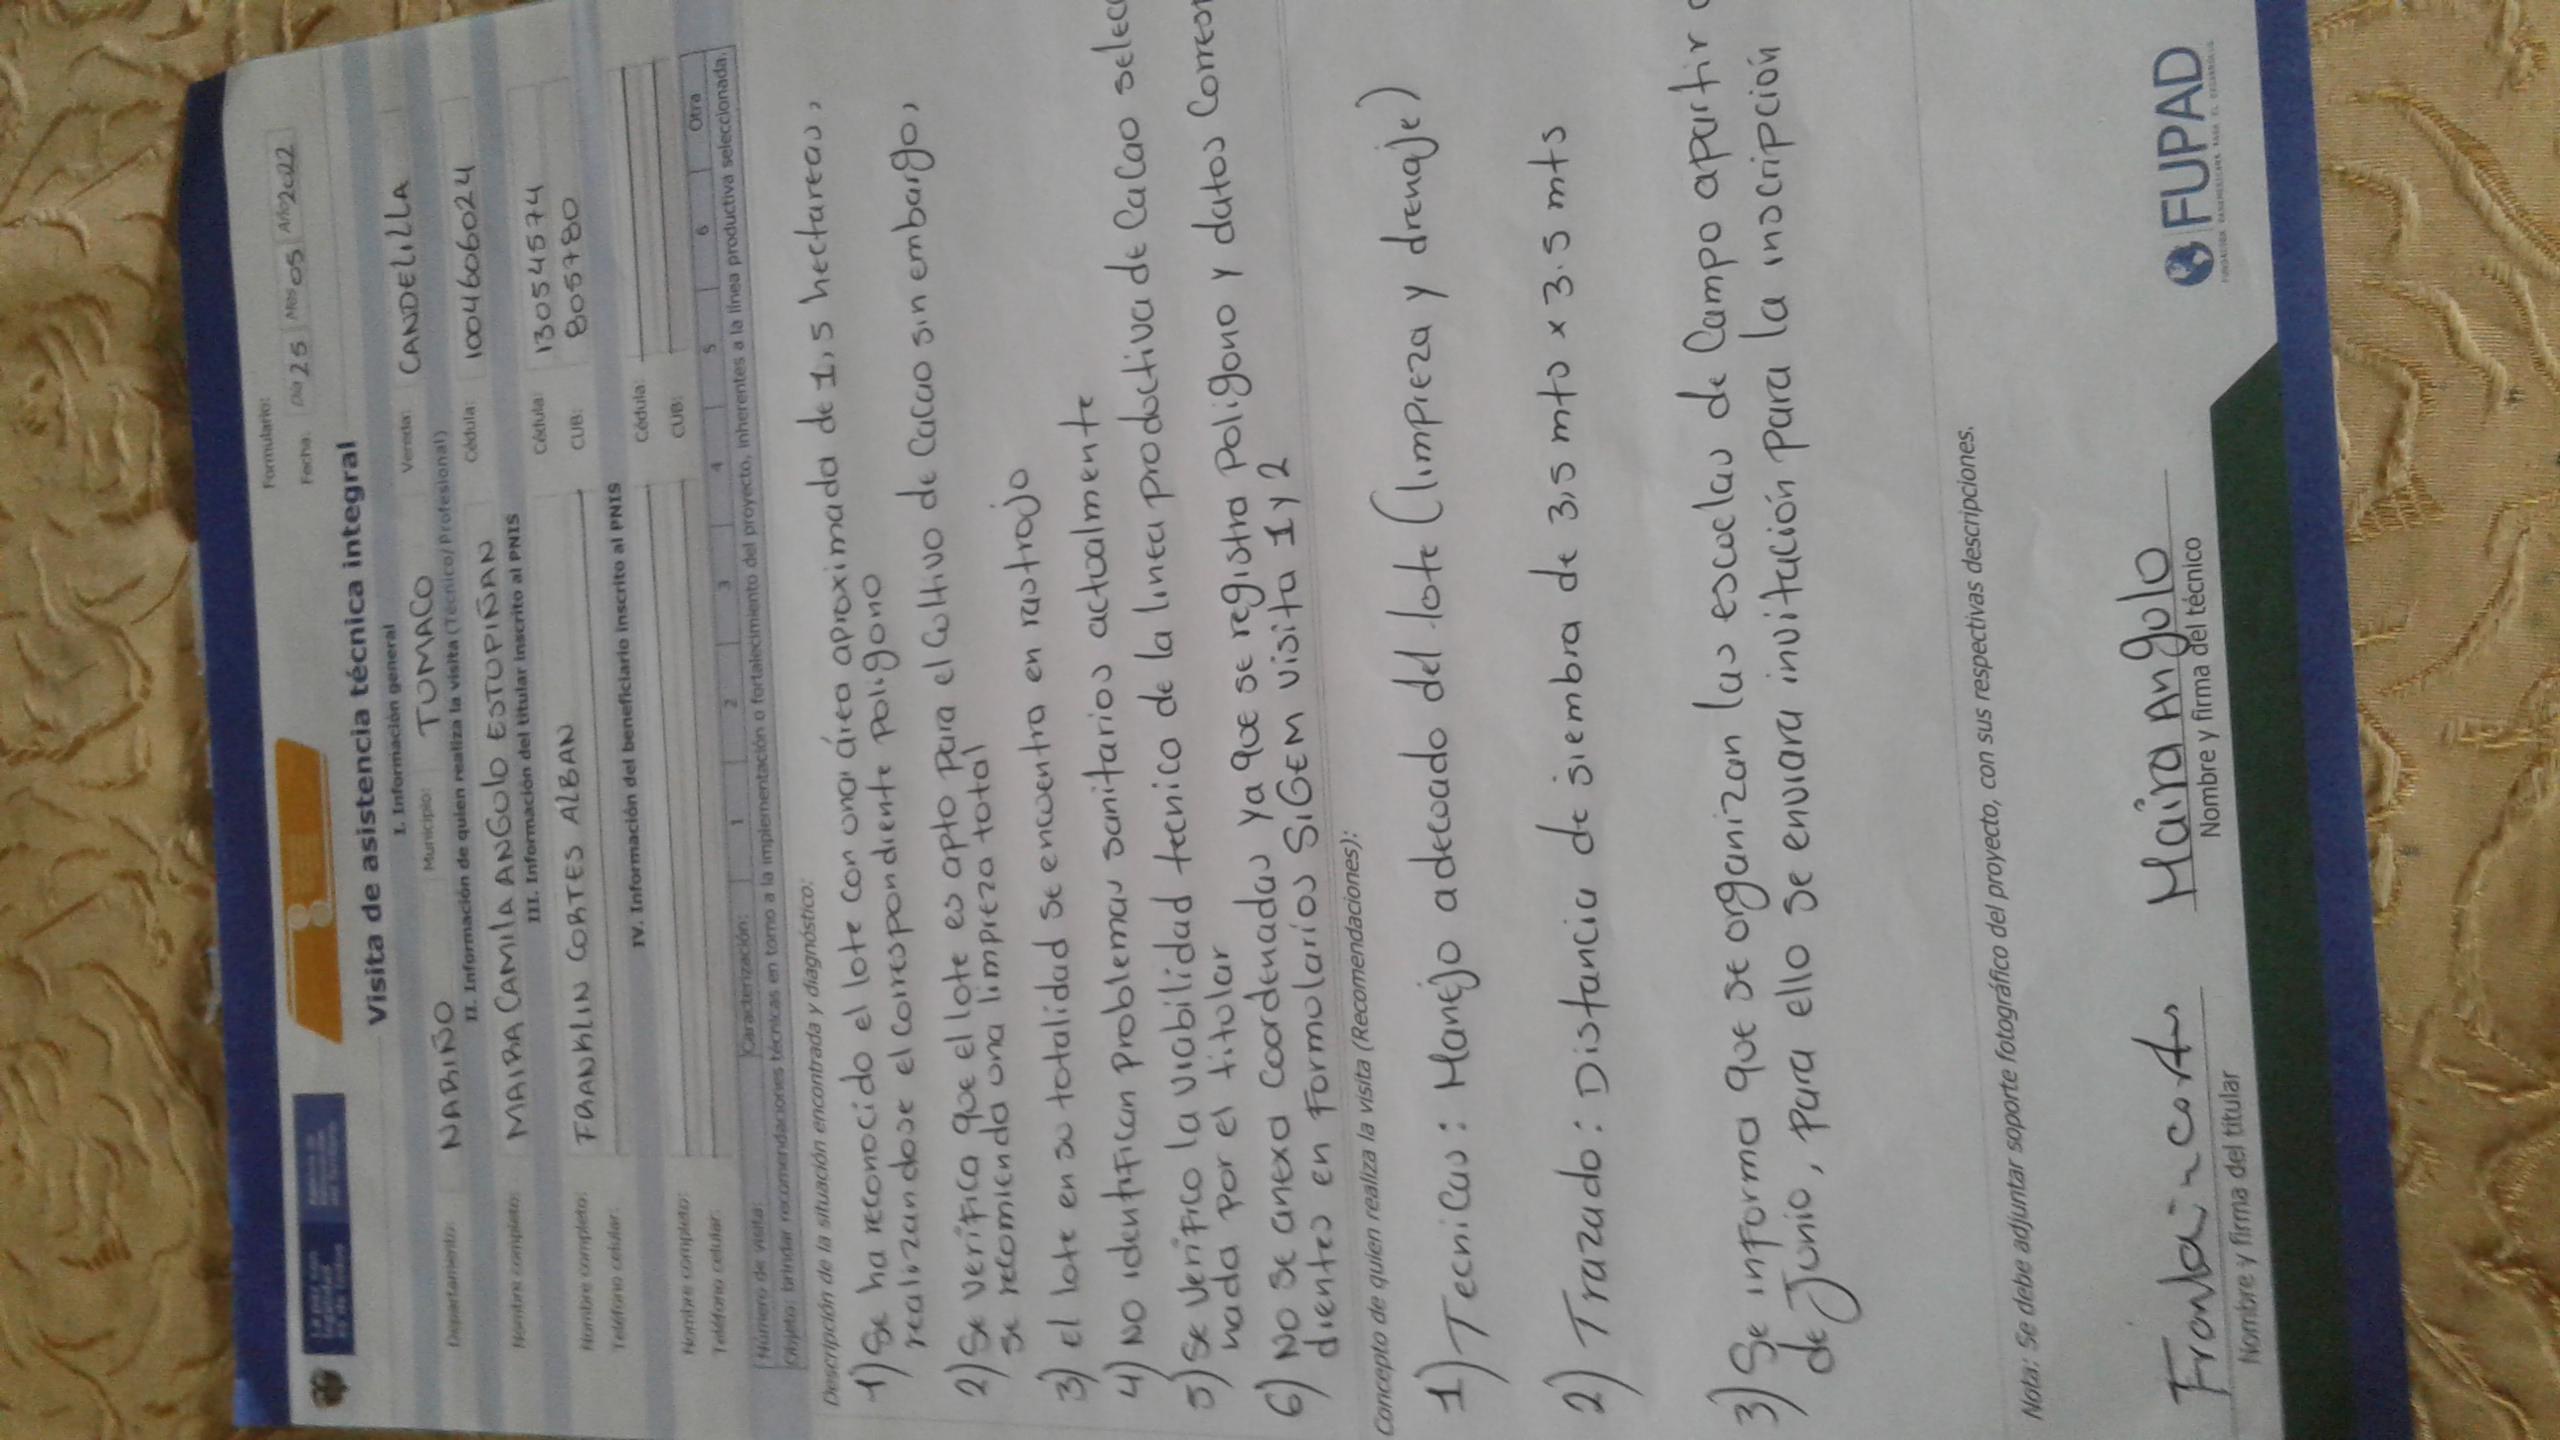 Formulario:
Fecha: Día 25 Mes 05 Año 2022
Visita de asistencia técnica integral
I. Información general
Departamento: NARIÑO Municipio: TUMACO Vereda: CANDELILLA
II. Información de quien realiza la visita (Técnico/Profesional)
Nombre completo: MAIRA CAMILA ANGULO ESTUPIÑAN Cédula: 1004606024
III. Información del titular inscrito al PNIS
Nombre completo: FRANKLIN CORTES ALBAN Cédula: 130545574
Teléfono celular: CUB: 8055780
IV. Información del beneficiario inscrito al PNIS
Nombre completo: Cédula:
Teléfono celular: CUB:
Número de visita: Caracterización: 1 2 3 4 5 6 Otra
Objeto: brindar recomendaciones técnicas en torno a la implementación o fortalecimiento del proyecto, inherentes a la línea productiva seleccionada.
Descripción de la situación encontrada y diagnóstico:
1) Se ha reconocido el lote con una área aproximada de 1,5 hectareas,
realizandose el correspondiente poligono
2) Se verifica que el lote es apto para el cultivo de cacao sin embargo,
se recomienda una limpieza total
3) el lote en su totalidad se encuentra en rastrojo
4) No identifican problemas sanitarios actualmente
5) Se verifico la viabilidad tecnico de la linea productiva de cacao selecc
nada por el titular
6) No se anexa coordenadas ya que se registra poligono y datos corres
dientes en formularios SIGEM visita 1 y 2
Concepto de quien realiza la visita (Recomendaciones):
1) Tecnicas: Manejo adecuado del lote (limpieza y drenaje)
2) Trazado: Distancia de siembra de 3,5 mts x 3.5 mts
3) Se informa que se organizan las escuelas de campo apartir
de Junio, para ello se enviara invitación para la inscripción
Nota: Se debe adjuntar soporte fotográfico del proyecto, con sus respectivas descripciones.
Franklin cortes Maira Angulo
Nombre y firma del titular Nombre y firma del técnico
FUPAD